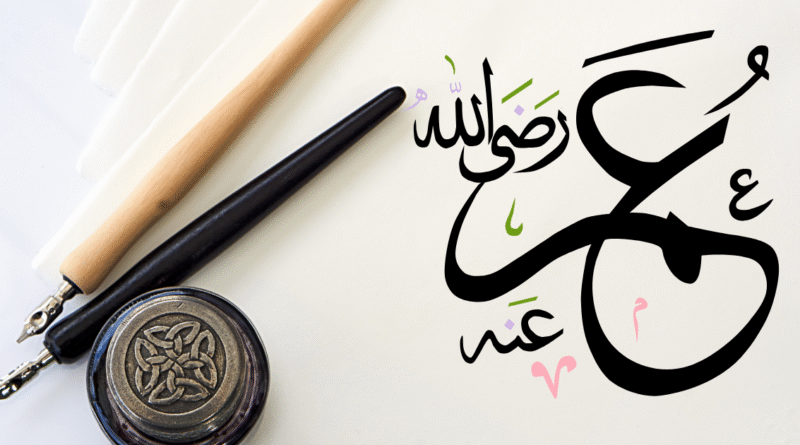 عُمَر
رَضىَ الله
عَنه